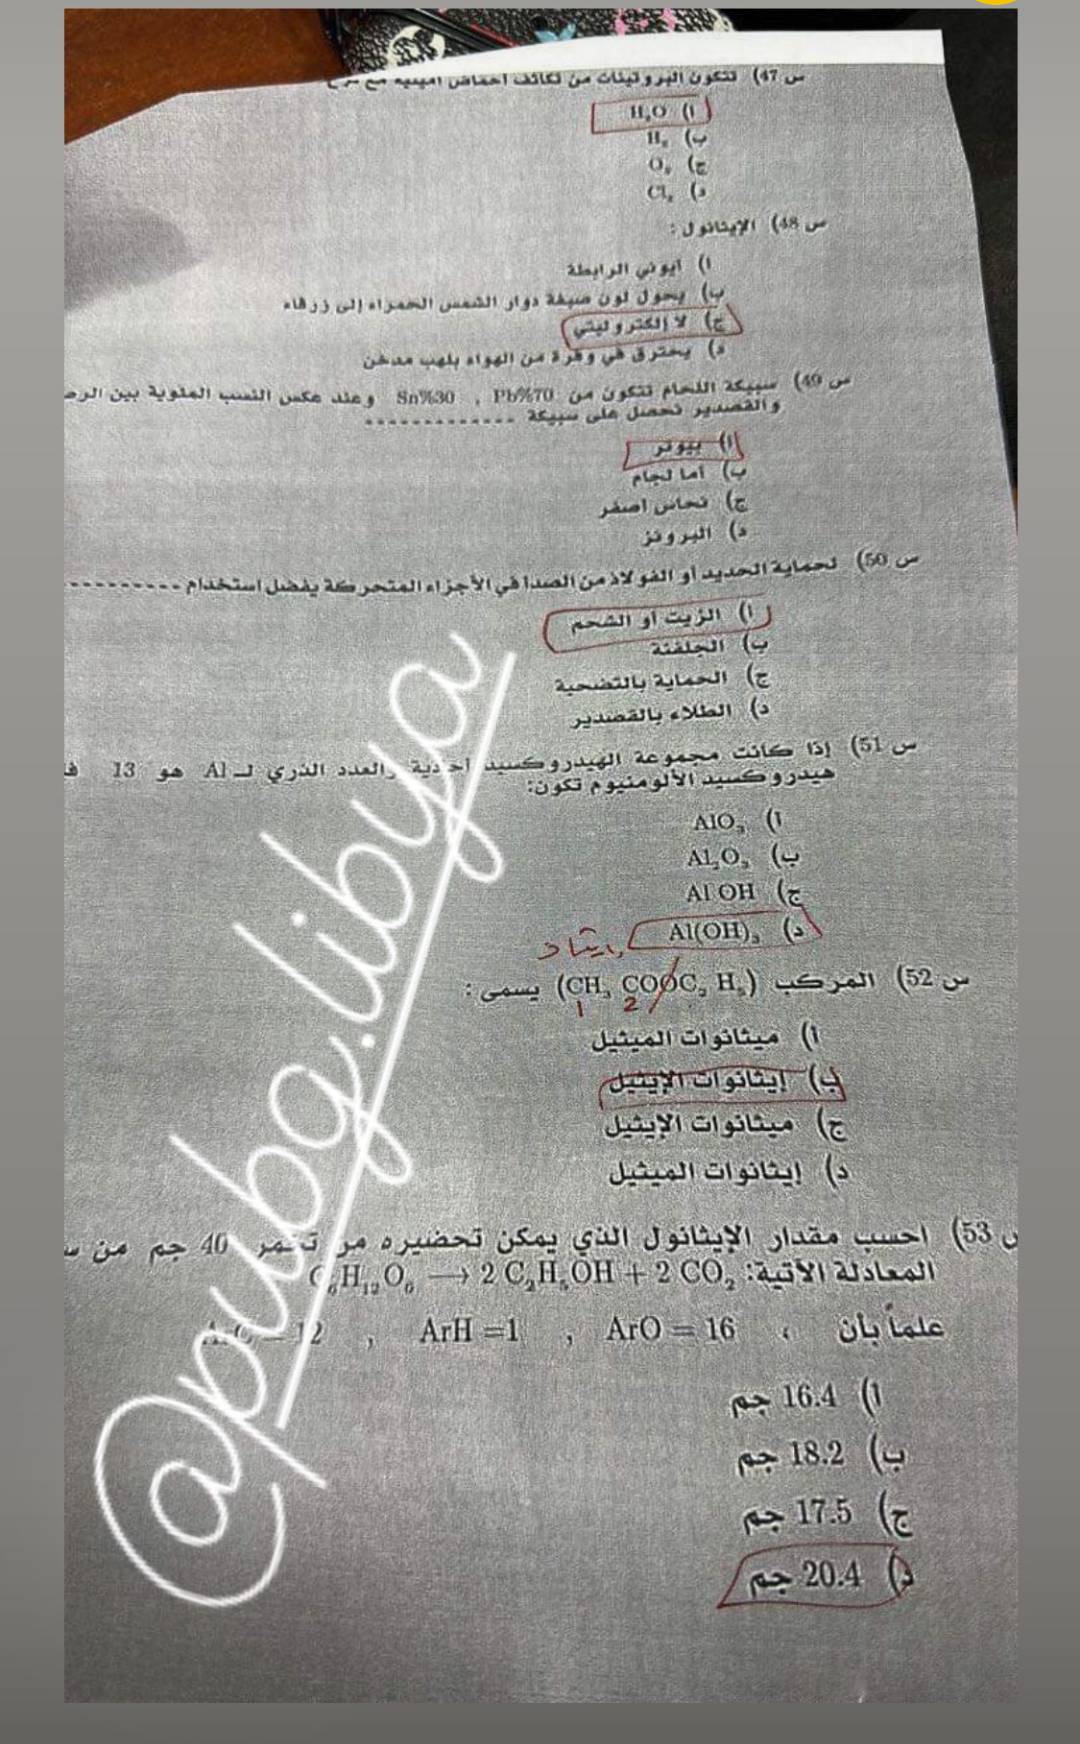 س 47) تتكون البروتينات من تكاثف أحماض أمينية مع
أ) H₂O
ب) H₂
ج) O₂
د) Cl₂
س 48) الإيثانول :
أ) أيوني الرابطة
ب) يحول لون صبغة دوار الشمس الحمراء إلى زرقاء
ج) لا إلكتروليتي
د) يحترق في وفرة من الهواء بلهب مدخن
س 49) سبيكة اللحام تتكون من Pb%70 , Sn%30 وعند عكس النسب المئوية بين الرص
والقصدير نحصل على سبيكة -------------
أ) بيوتر
ب) أما لجام
ج) نحاس أصفر
د) البرونز
س 50) لحماية الحديد أو الفولاذ من الصدأ في الأجزاء المتحركة يفضل استخدام ----------
أ) الزيت أو الشحم
ب) الجلفنة
ج) الحماية بالتضحية
د) الطلاء بالقصدير
س 51) إذا كانت مجموعة الهيدروكسيد أحادية والعدد الذري لـ Al هو 13 ف
هيدروكسيد الألومنيوم تكون:
أ) AlO₃
ب) Al₂O₃
ج) Al OH
د) Al(OH)₃
س 52) المركب (CH₃ COOC₂ H₅) يسمى :
1 2
أ) ميثانوات الميثيل
ب) إيثانوات الإيثيل
ج) ميثانوات الإيثيل
د) إيثانوات الميثيل
س 53) احسب مقدار الإيثانول الذي يمكن تحضيره من تخمر 40 جم من
المعادلة الآتية: C₆H₁₂O₆ → 2 C₂H₅OH + 2 CO₂
علماً بأن ، ArO = 16 , ArH =1 , ArC = 12
أ) 16.4 جم
ب) 18.2 جم
ج) 17.5 جم
د) 20.4 جم
@pubg.libya